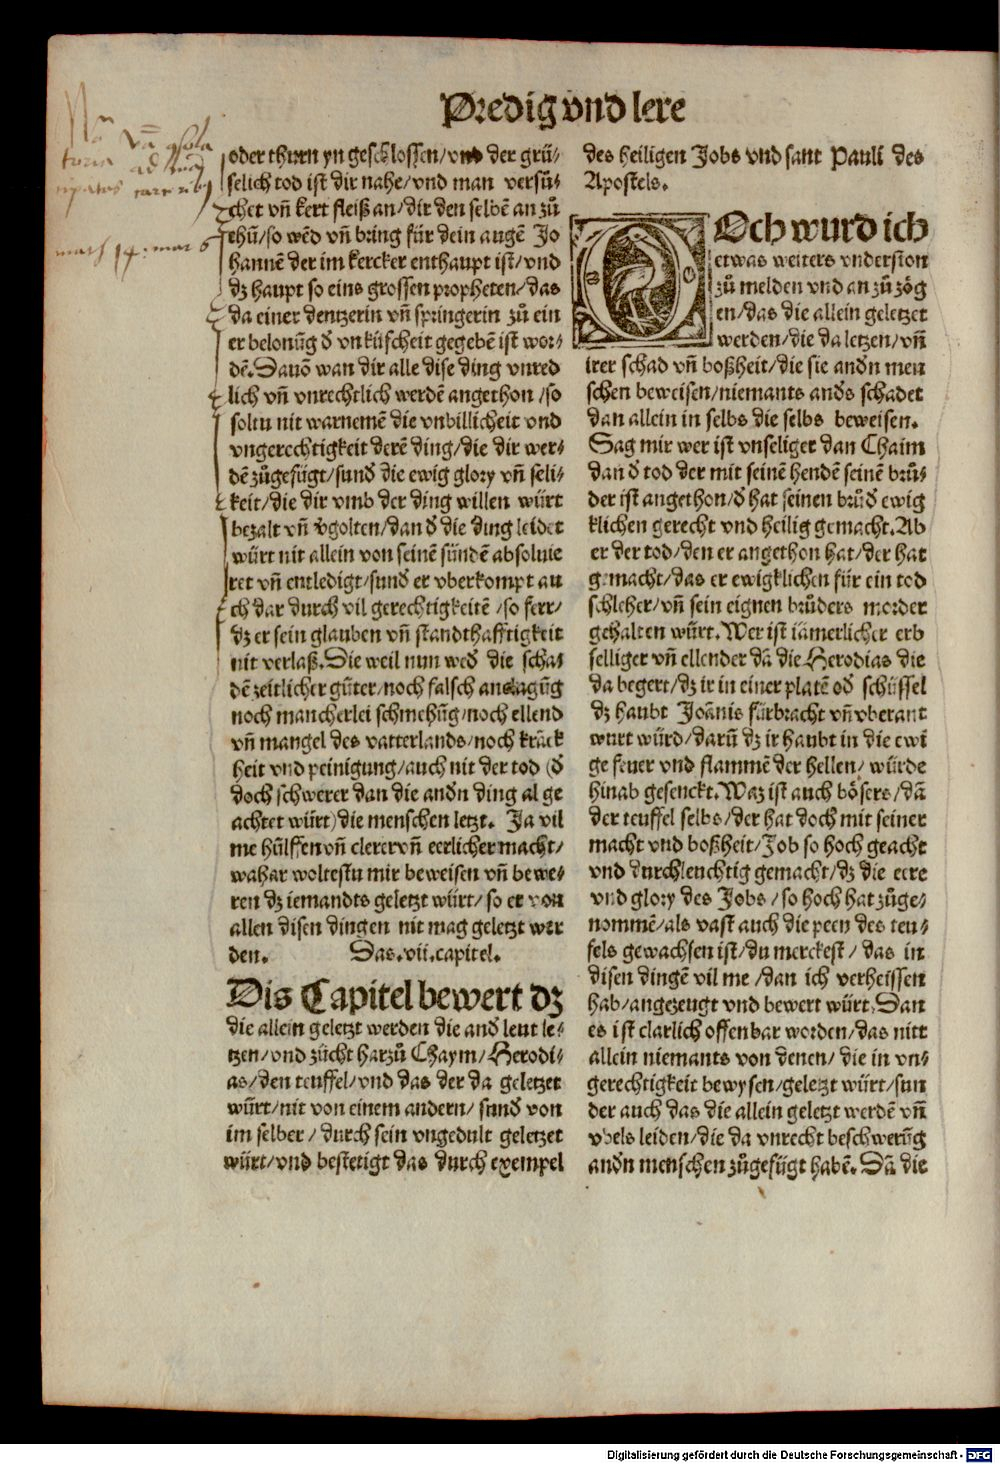 Predig vnd lere
mach 14. mar 6
oder thurn yn geschlossen/vnd der grü⸗
selich tod ist dir nahe/vnd man versü⸗
chet vñ kert fleiß an/dir den selbē an zů
thů/so wēd vñ bring für dein augē Jo
hannē der im kercker enthaupt ist/vnd
dz haupt so eins grossen propheten/das
da einer dentzerin vñ springerin zů ein
er belonūg đ vnküscheit gegebē ist wor⸗
dē. Dauō wan dir alle dise ding vnred
lich vñ vnrechtlich werdē angethon/so
soltu nit warnemē die vnbillicheit vnd
vngerechtigkeit derē ding/die dir wer⸗
dē zůgefügt/sunđ die ewig glory vñ seli⸗
keit/die dir vmb der ding willen würt
bezalt vñ vgolten/dan đ die ding leidet
würt nit allein von seinē sündē absoluie
ret vñ entledigt/sunđ er vberkompt au
ch dar durch vil gerechtigkeitē/so ferr/
dz er sein glauben vñ standthafftigkeit
nit verlaß. Die weil nun weđ die scha⸗
dē zeitlicher gůter/noch falsch anslagūg
noch mancherlei schmehūg/noch ellend
vñ mangel des vatterlands/noch krāck
heit vnd peinigung/auch nit der tod (đ
doch schwerer dan die andn ding al ge
achtet würt) die menschen letzt. Ja vil
me hülffen vñ clerer vñ eerlicher macht/
wahar woltestu mir beweisen vñ bewe⸗
ren dz iemandts geletzt würt/so er von
allen disen dingen nit mag geletzt wer
den. Das.vii.capitel.
Dis Capitel bewert dz
die allein geletzt werden die anđ leut le⸗
tzen/vnd zücht harzů Chaym/Herodi⸗
as/den teuffel/vnd das der da geletzet
würt/nit von einem andern/sunđ von
im selber/durch sein vngedult geletzet
würt/vnd bestetigt das durch exempel
des heiligen Jobs vnd sant Pauli des
Apostels.
Och wurd ich
etwas weiters vnderston
zů melden vnd an zů zög
en/das die allein geletzet
werden/die da letzen/vñ
irer schad vñ boßheit/die sie andn men
schen beweisen/niemants anđs schadet
dan allein in selbs die selbs beweisen.
Sag mir wer ist vnseliger dan Chaim
dan đ tod der mit seinē hendē seinē brů⸗
der ist angethon/đ hat seinen brůđ ewig
klichen gerecht vnd heilig gemacht. Ab
er der tod/den er angethon hat/der hat
gemacht/das er ewigklichen für ein tod
schleher/vñ sein eignen brůders morder
gehalten würt. Wer ist iämerlicher erb
selliger vñ ellender dā die Herodias die
da begert/dz ir in einer platē ođ schüssel
dz haubt Joānis fürbracht vñ vberant
wurt würd/darū dz ir haubt in die ewi
ge feuer vnd flammē der hellen/würde
hinab gesenckt. Waz ist auch bösers/dā
der teuffel selbs/der hat doch mit seiner
macht vnd boßheit/Job so hoch geacht
vnd durchleuchtig gemacht/dz die eere
vnd glory des Jobs/so hoch hat zůge⸗
nommē/als vast auch die peen des teu⸗
fels gewachsen ist/du merckest/das in
disen dingē vil me/dan ich verheissen
hab/angezeugt vnd bewert würt. Dan
es ist clarlich offenbar worden/das nitt
allein niemants von denen/die in vn⸗
gerechtigkeit bewysen/geletzt würt/sun
der auch das die allein geletzt werdē vñ
vbels leiden/die da vnrecht beschwerūg
andn menschen zůgefügt habē. Dā die
Digitalisierung gefördert durch die Deutsche Forschungsgemeinschaft - DFG